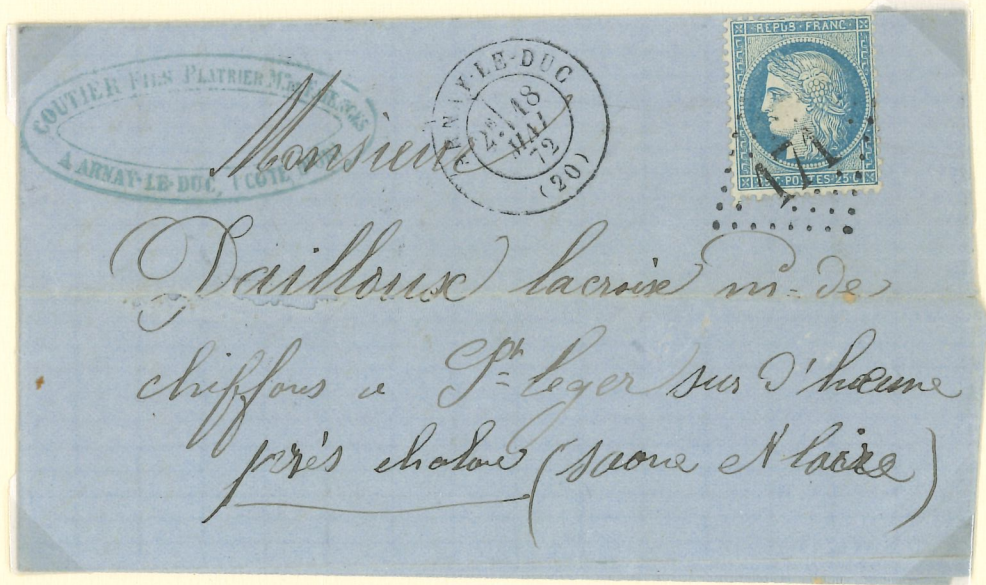 COUTIER FILS PLATRIER
A ARNAY-LE-DUC, (COTE
ARNAY-LE-DUC
2E
18
MAI
72
(20)
REPUB·FRANC·
POSTES·25
171
Monsieur
Dailloux lacroix md de
chiffons a St leger sur d'heune
près chalon (saone et loire)